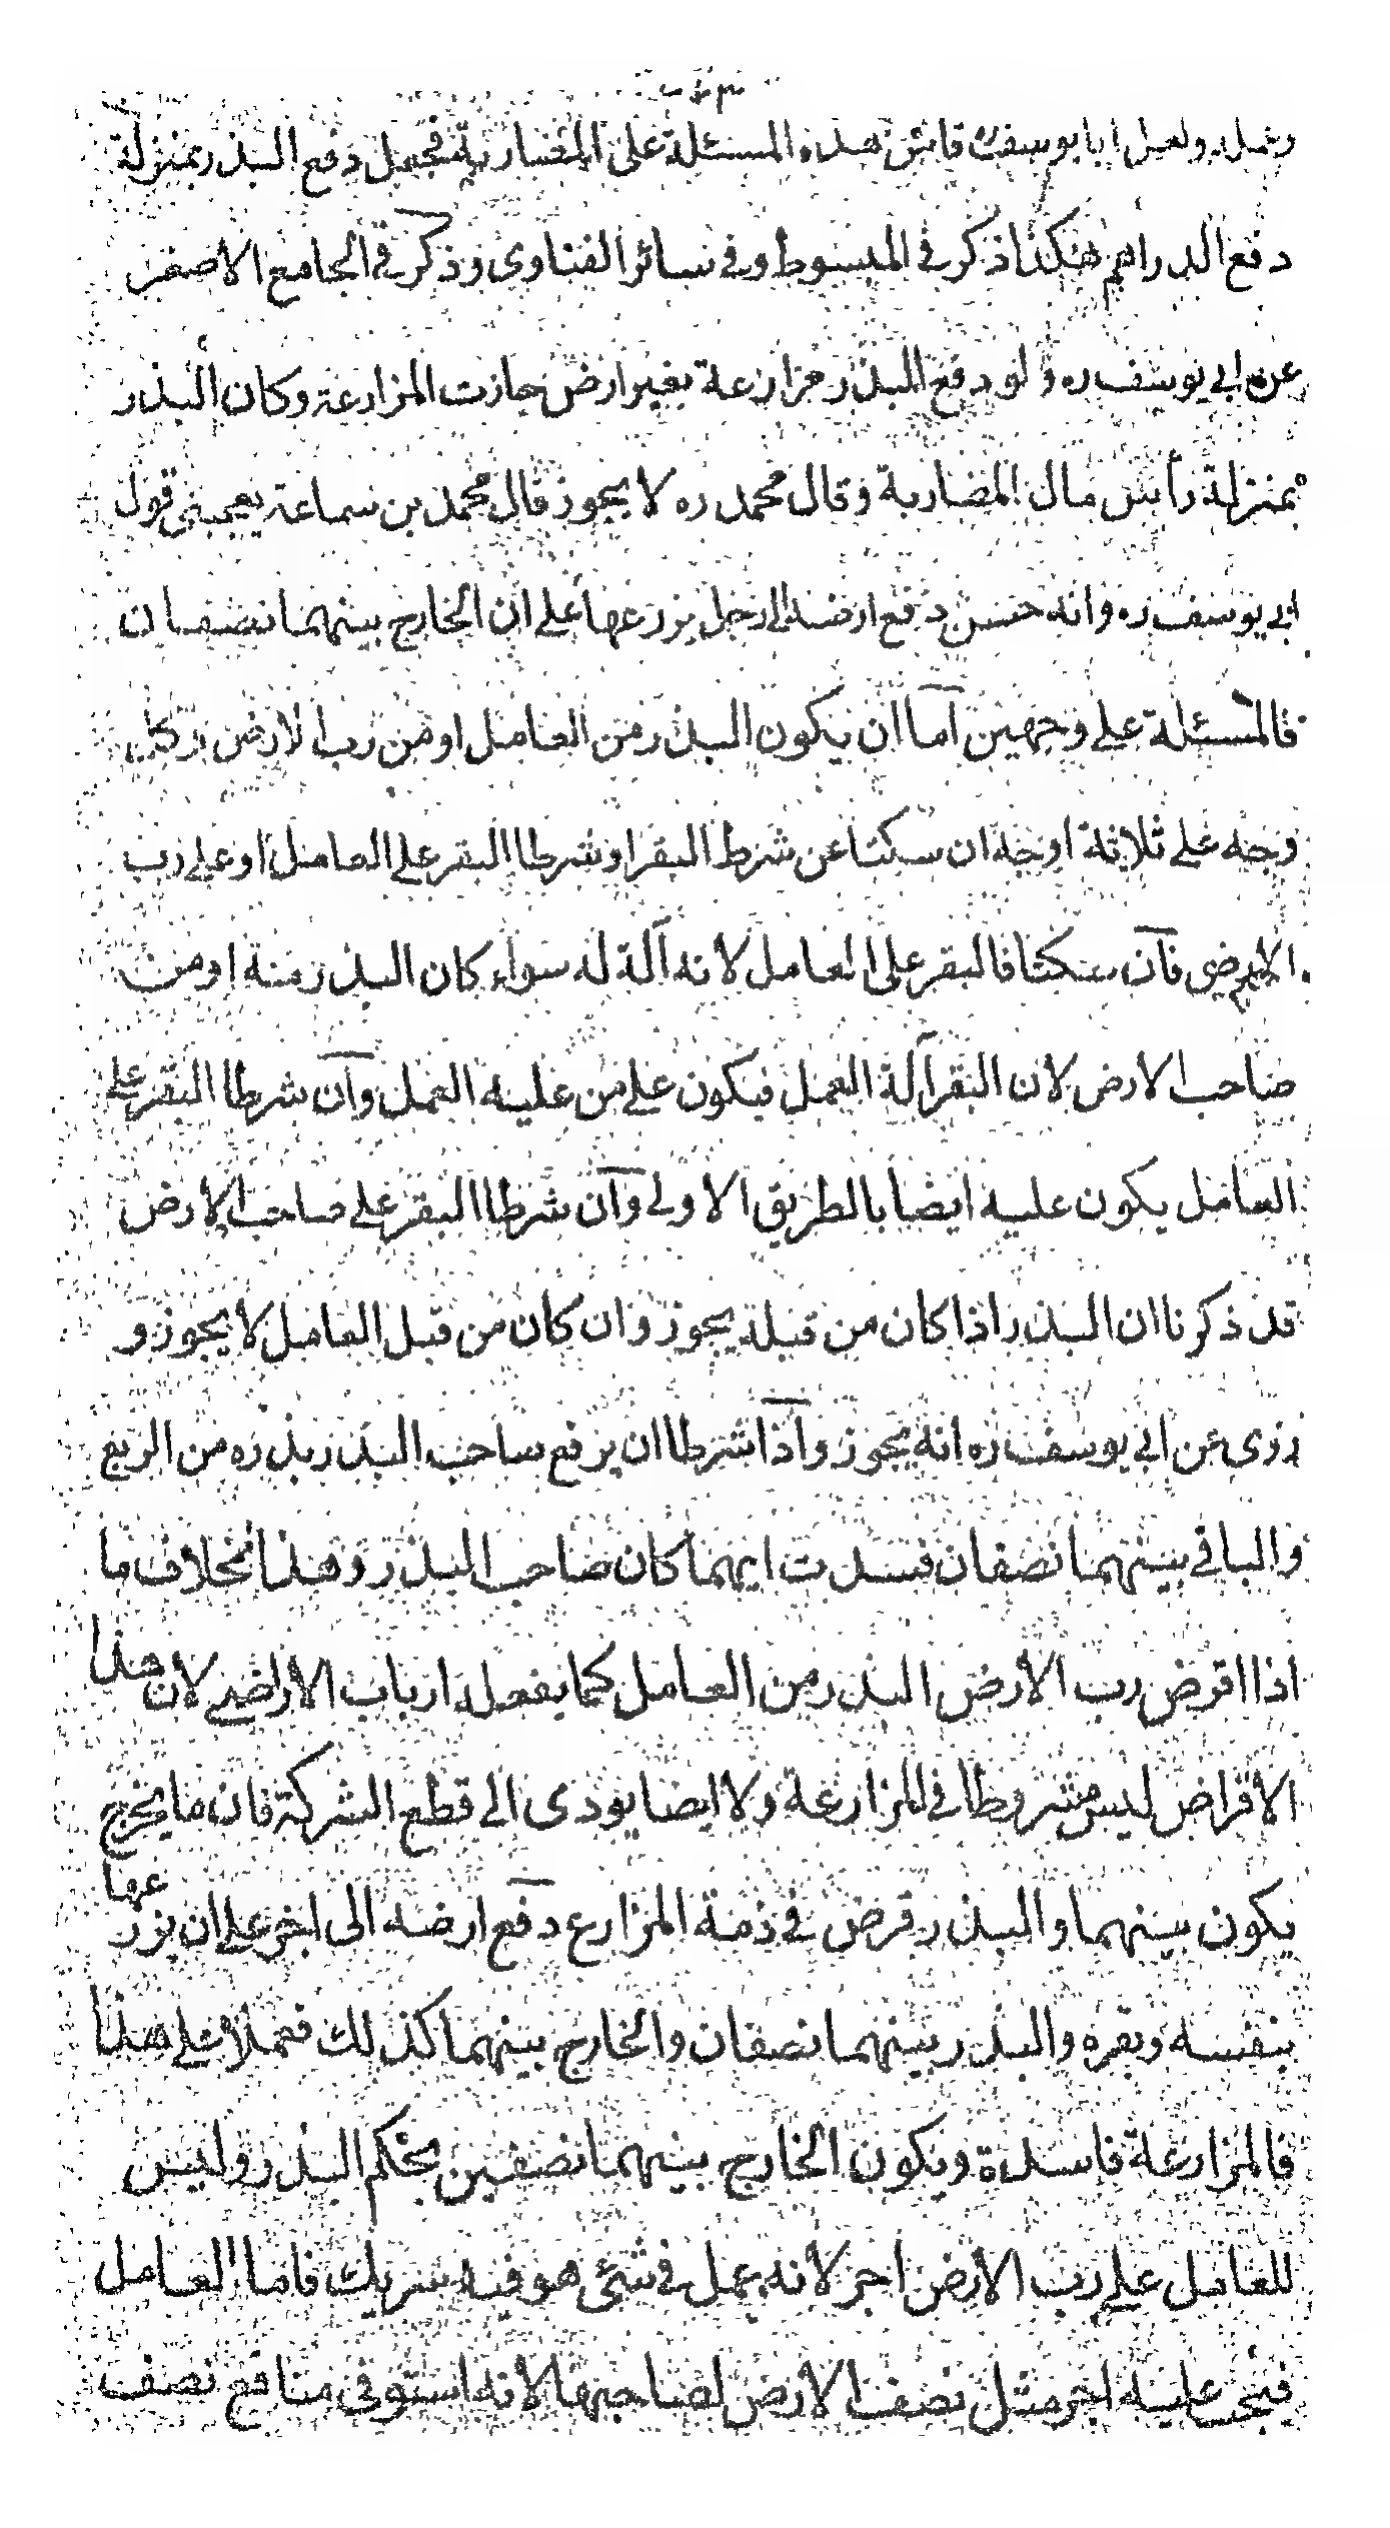 وعمله ولعل ابا يوسف قاس هذه المسئلة على المضاربة فجعل دفع البذر بمنزلة
دفع الدراهم هكذا ذكر في المبسوط وفي سائر الفتاوى وذكر في الجامع الاصغر
عن ابي يوسف ره ولو دفع البذر مزارعة بغير ارض جازت المزارعة وكان البذر
بمنزلة رأس مال المضاربة وقال محمد ره لا يجوز قال محمد بن سماعة يعجبني قول
ابي يوسف ره وانه حسن دفع ارضه الى رجل يزرعها على ان الخارج بينهما نصفان
فالمسئلة على وجهين اما ان يكون البذر من العامل او من رب الارض وكل
وجه على ثلاثة اوجه ان سكتا عن شرط البقر او شرطا البقر على العامل او على رب
الارض فان سكتا فالبقر على العامل لانه آلة له سواء كان البذر منه او من
صاحب الارض لان البقر آلة العمل فيكون على من عليه العمل وان شرطا البقر على
العامل يكون عليه ايضا بالطريق الاولى وان شرطا البقر على صاحب الارض
قد ذكرنا ان البذر اذا كان من قبله يجوز وان كان من قبل العامل لا يجوز و
روى عن ابي يوسف ره انه يجوز واذا شرطا ان يرفع صاحب البذر بذره من الريع
والباقي بينهما نصفان فسدت ايهما كان صاحب البذر وهذا بخلاف ما
اذا اقرض رب الارض البذر من العامل كما يفعله ارباب الاراضي لان هذا
الاقراض ليس مشروطا في المزارعة ولا ايضا يودى الى قطع الشركة فان ما يخرج
يكون بينهما والبذر قرض في ذمة المزارع دفع ارضه الى اخر على ان يزرعها
بنفسه وبقره والبذر بينهما نصفان والخارج بينهما كذلك فعملا على هذا
فالمزارعة فاسدة ويكون الخارج بينهما نصفين بحكم البذر وليس
للعامل على رب الارض اجر لانه عمل في شئ هو فيه شريك فاما العامل
فيجب عليه اجر مثل نصف الارض لصاحبها لانه استوفى منافع نصف